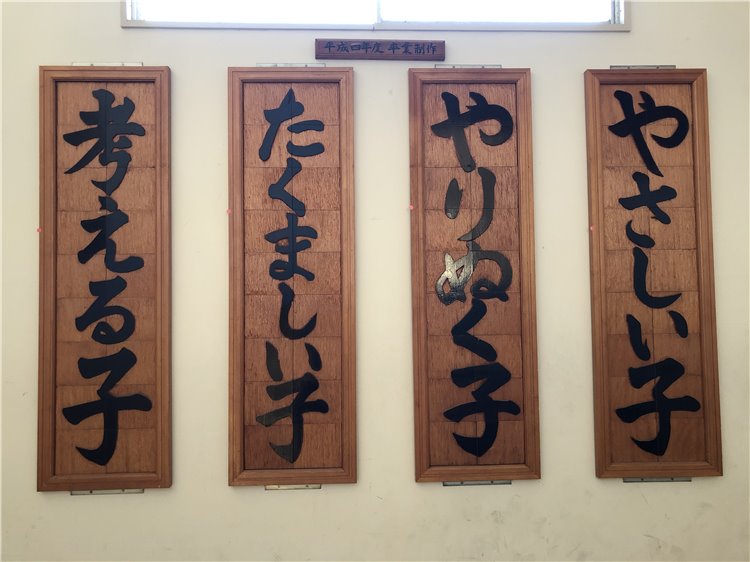 平成四年度 卒業制作
やさしい子
やりぬく子
たくましい子
考える子